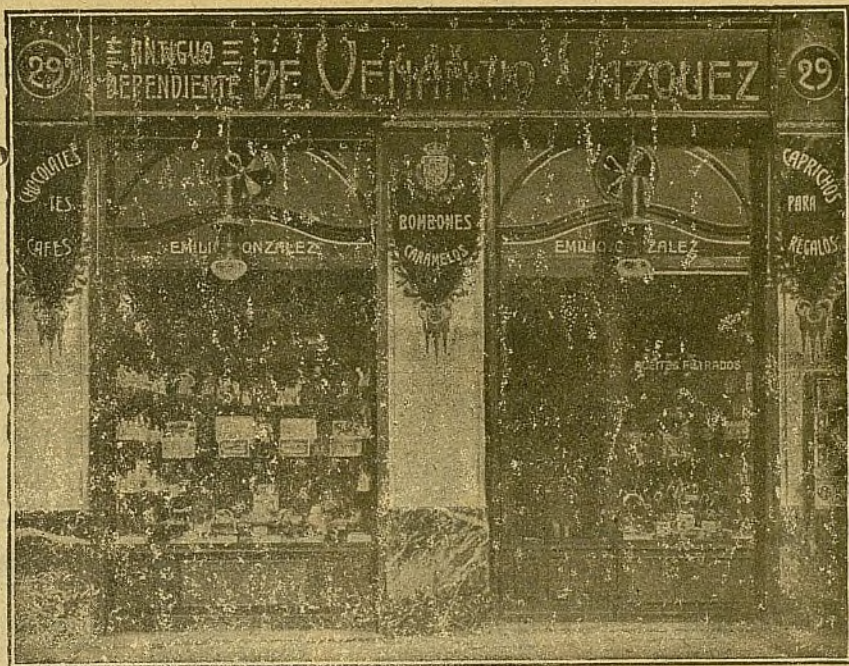 29
ANTIGUO
DEPENDIENTE
DE VENANCIO VAZQUEZ
29
CHOCOLATES
TES
CAFES
EMILIO GONZALEZ
BOMBONES
CARAMELOS
EMILIO GONZALEZ
CAPRICHOS
PARA
REGALOS
ACEITES FILTRADOS